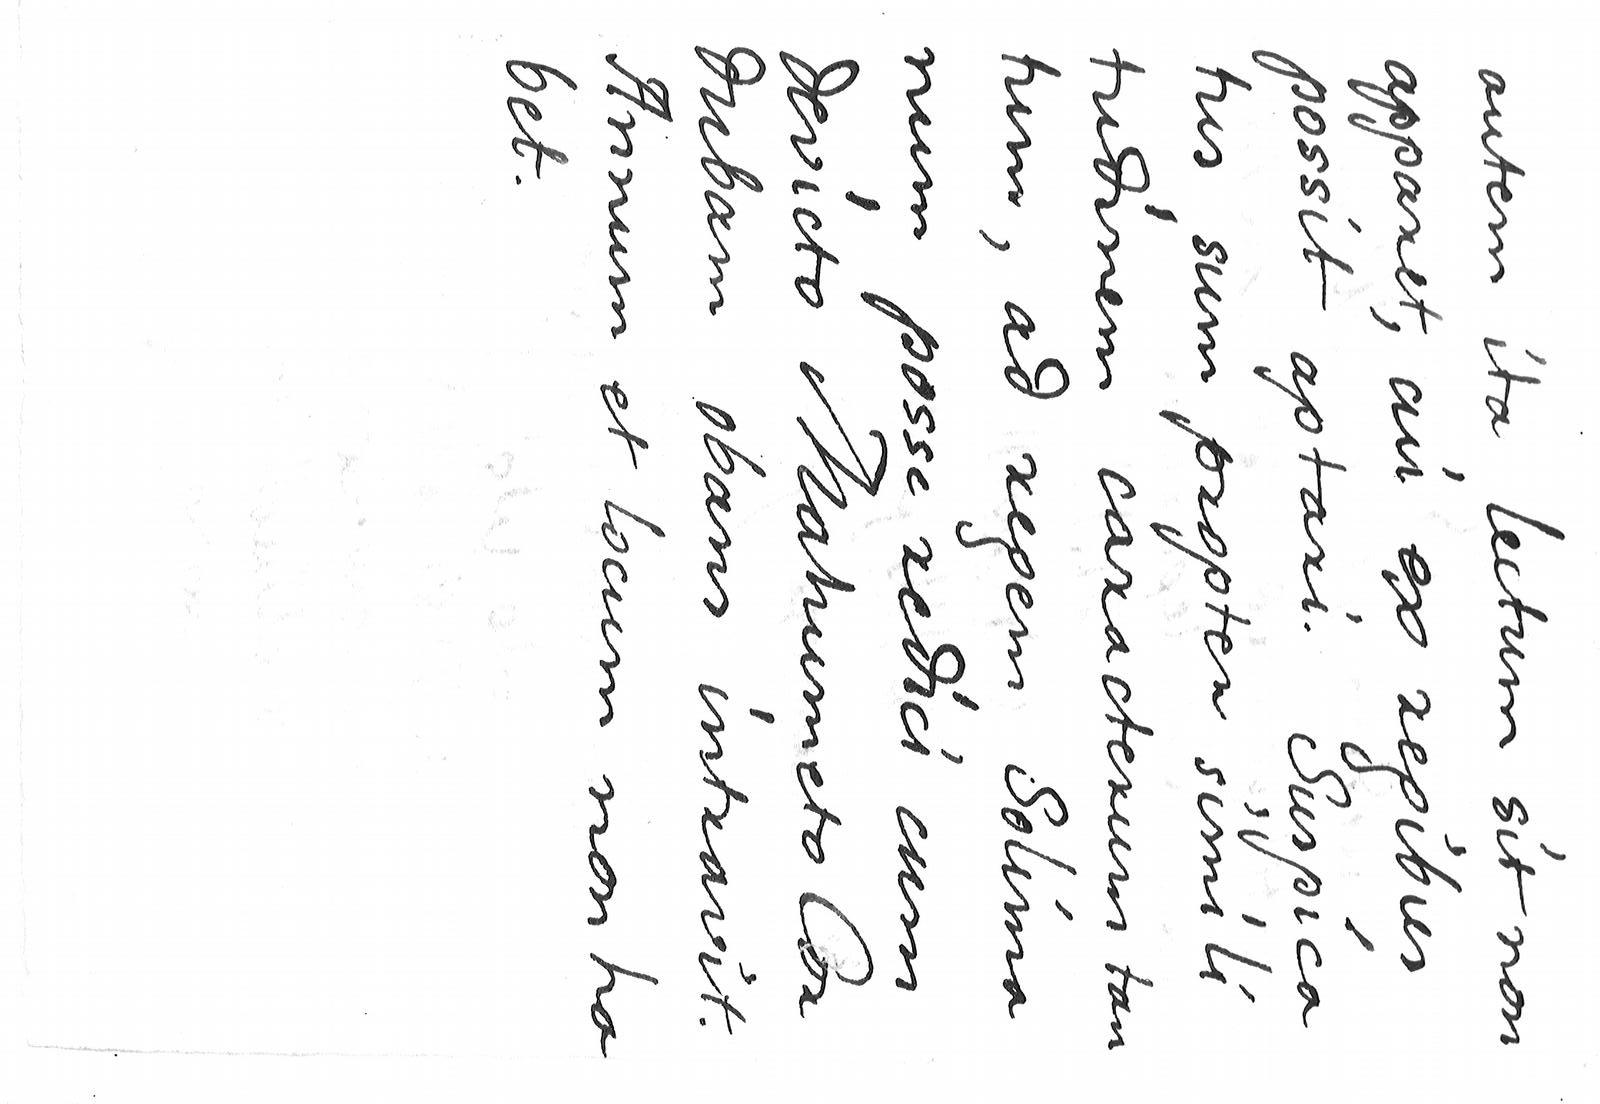 autem ita lectum sit non
apparet, cui ex regibus
possit aptari. Suspica
tus sum propter simili
tudinem characterum tan
tum, ad regem Solima
num posse redici cum
devicto Mahumeto Cor
dubam phans intravit.
Annum et locum non ha
bet.